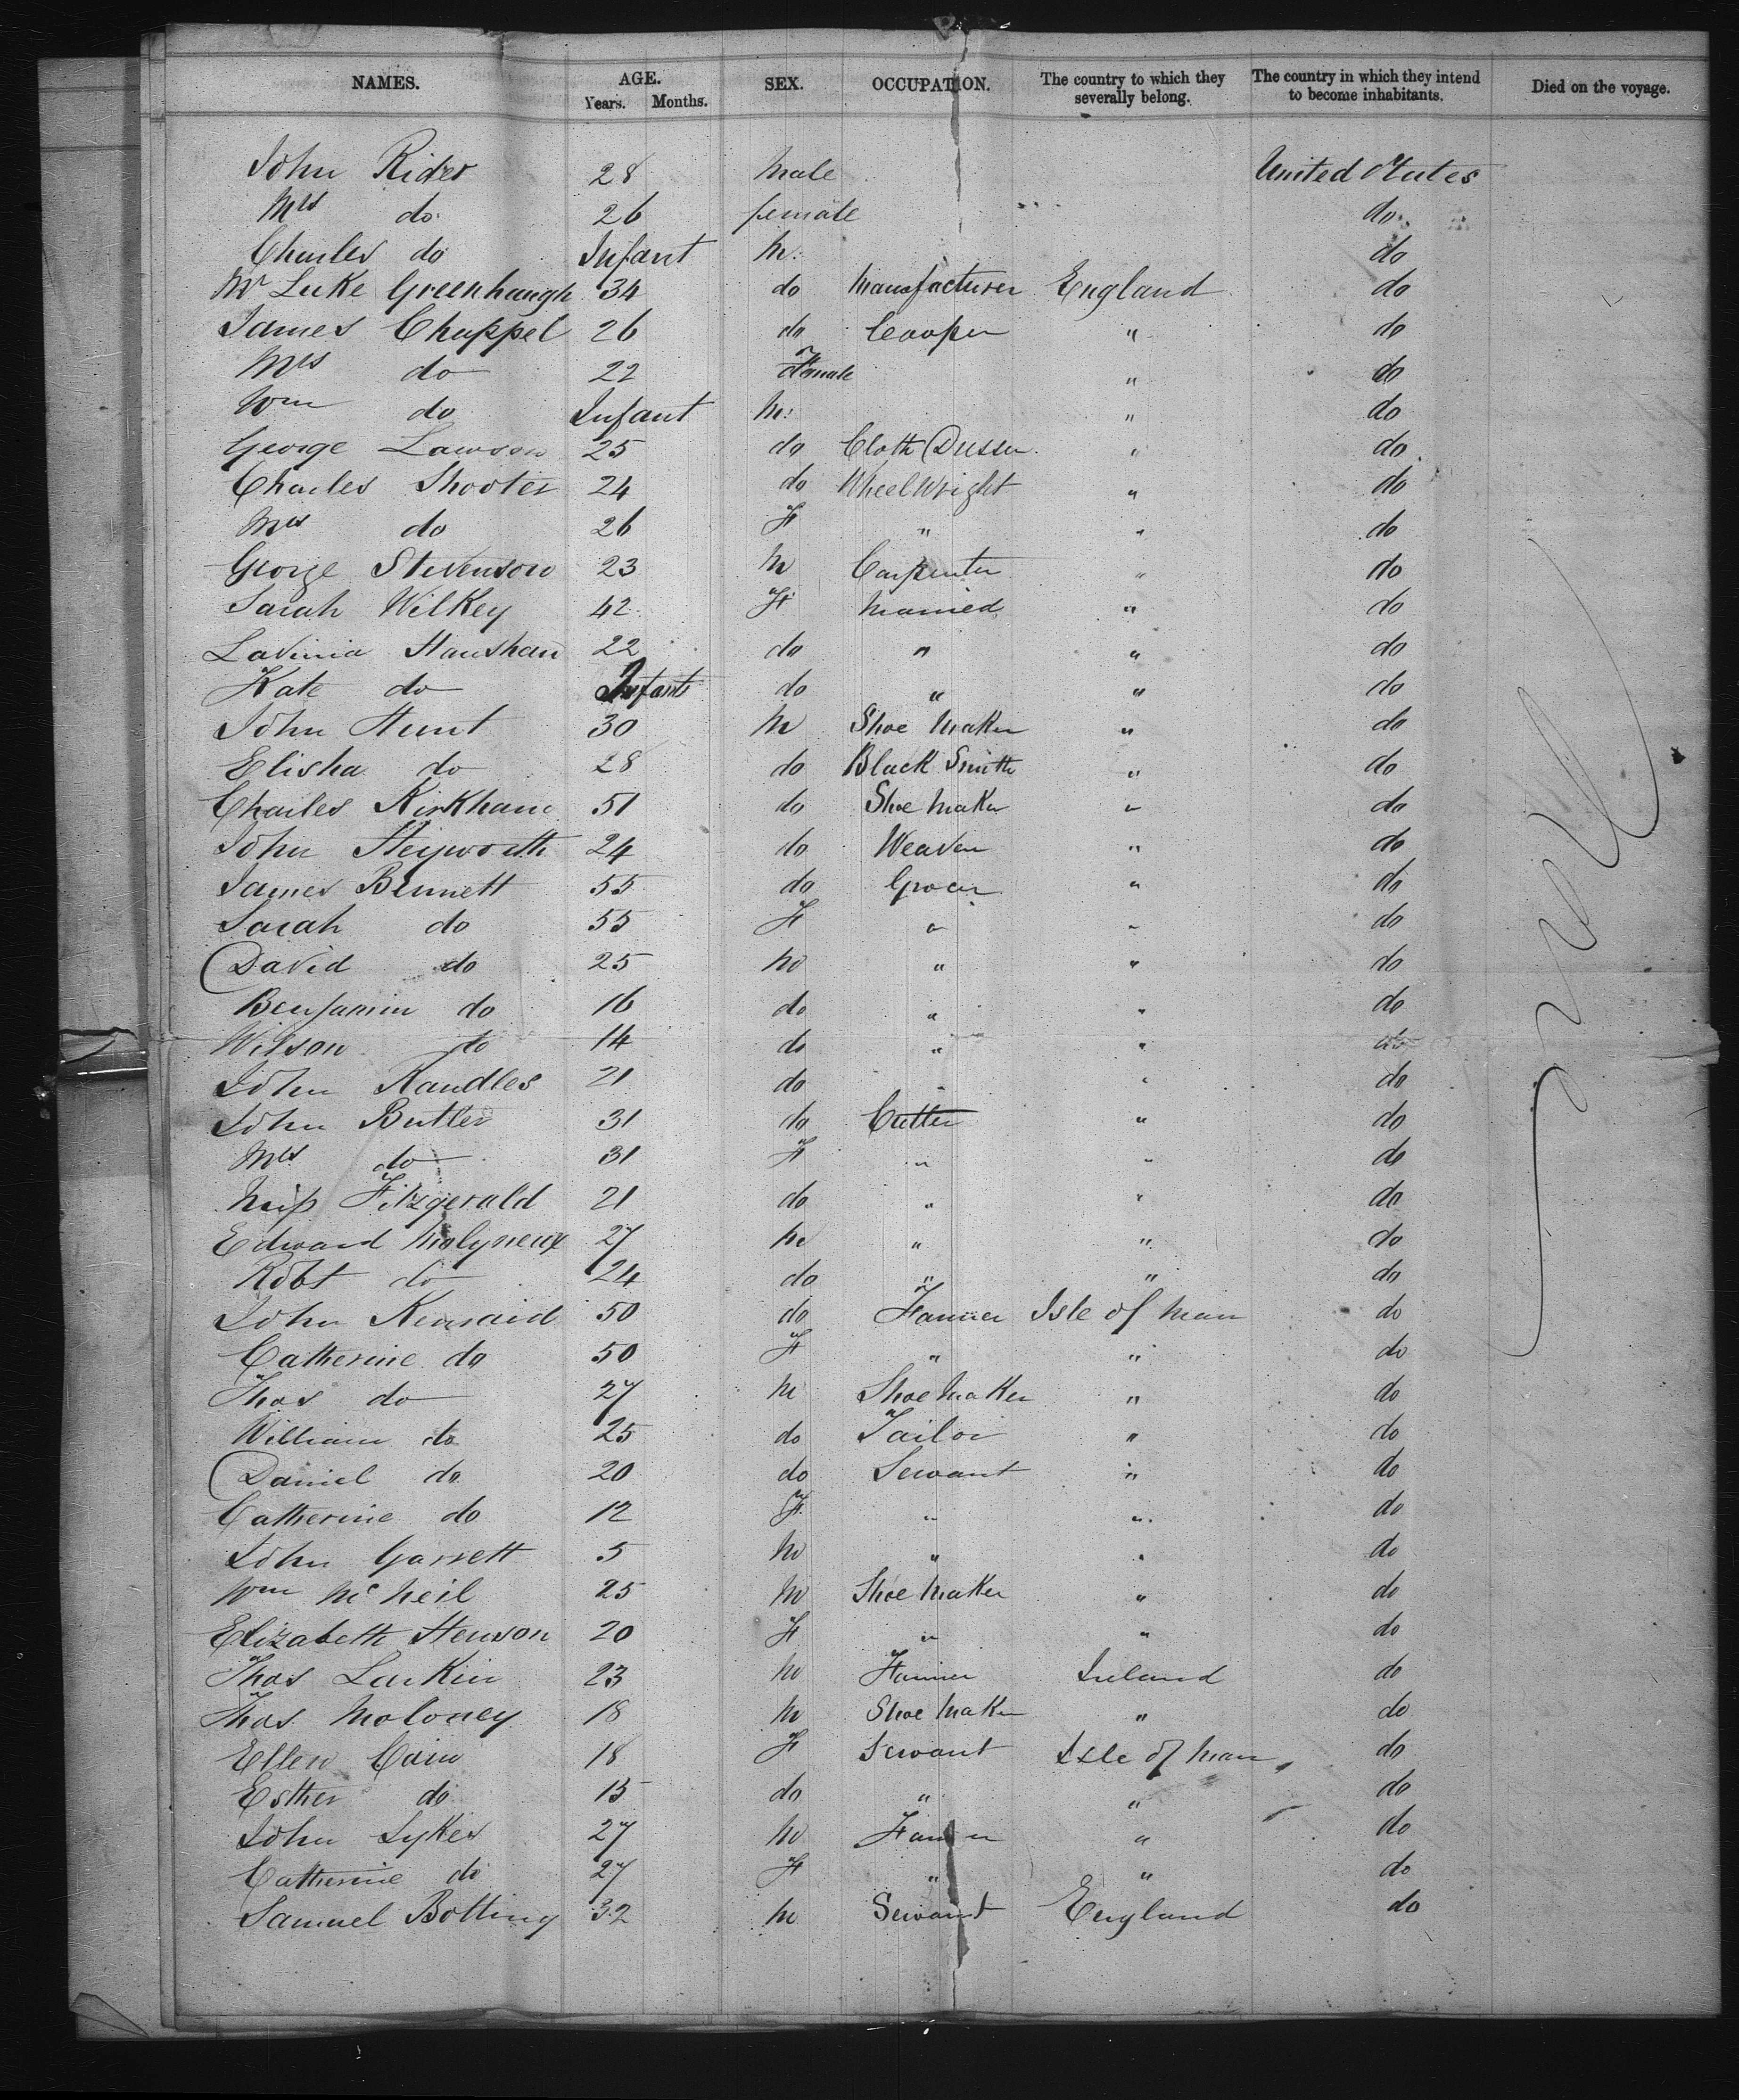 NAMES. AGE. SEX. OCCUPATION. The country to which they severally belong. The country in which they intend to become inhabitants. Died on the voyage.
Years. Months.
John Rider 28 Male United States
Mrs do 26 female do
Charles do Infant M. do
Mr Luke Greenhaugh 34 do Manufacturer England do
James Chappel 26 do Cooper " do
Mrs do 22 Female " do
Wm do Infant M: " do
George Lawson 25 do Cloth Dresser " do
Charles Shooter 24 do Wheel Wright " do
Mrs do 26 F " " do
George Stevenson 23 M Carpenter " do
Sarah Wilkey 42 F Married " do
Lavinia 22 do " " do
Kate do Infant do " " do
John Hunt 30 M Shoe Maker " do
Elisha do 28 do Black Smith " do
Charles Kirkham 51 do Shoe Maker " do
John Heyworth 24 do Weaver " do
James Bennett 55 do Grocer " do
Sarah do 55 F " " do
David do 25 M " " do
Benjamin do 16 do " " do
Wilson do 14 do " " do
John Randles 21 do " " do
John Butler 31 do Cutter " do
Mrs do 31 F " " do
Miss Fitzgerald 21 do " " do
Edward Molyneux 27 M " " do
Robt do 24 do " " do
John Kinraid 50 do Farmer Isle of Man do
Catherine do 50 F " " do
Thos do 27 M Shoe Maker " do
William do 25 do Tailor " do
Daniel do 20 do Servant " do
Catherine do 12 F " " do
John Garrett 5 M " " do
Wm McNeil 25 M Shoe Maker " do
Elizabeth Henson 20 F " " do
Thos Larkin 23 M Farmer Ireland do
Thos Moloney 18 M Shoe Maker " do
Ellen Cain 18 F Servant Isle of Man do
Esther do 15 do " " do
John Sykes 27 M Farmer " do
Catherine do 27 F " " do
Samuel Botting 32 M Servant England do